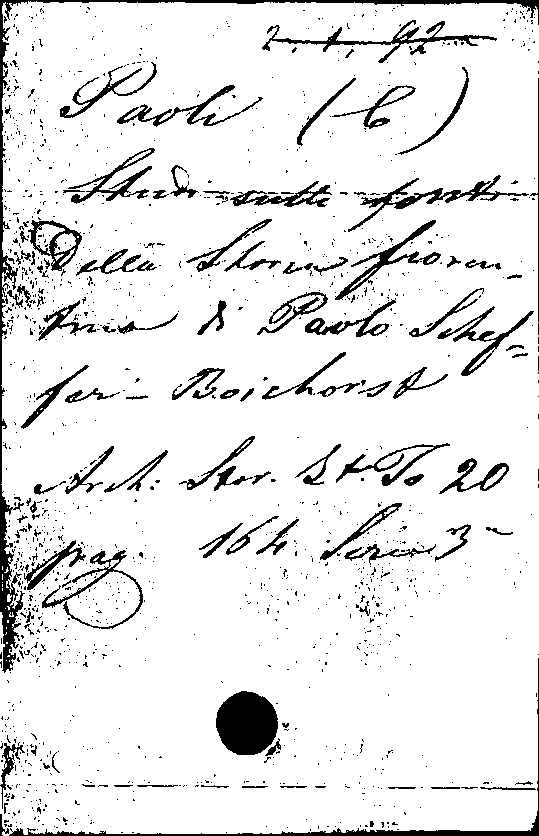 2. 1. 92
Paoli (C)
Studi sulle fonti
Della Storia fioren-
tina di Paolo Schef-
fer-Boichorst
Arch: Stor. It. To 20
pag. 164. Serie 3ª